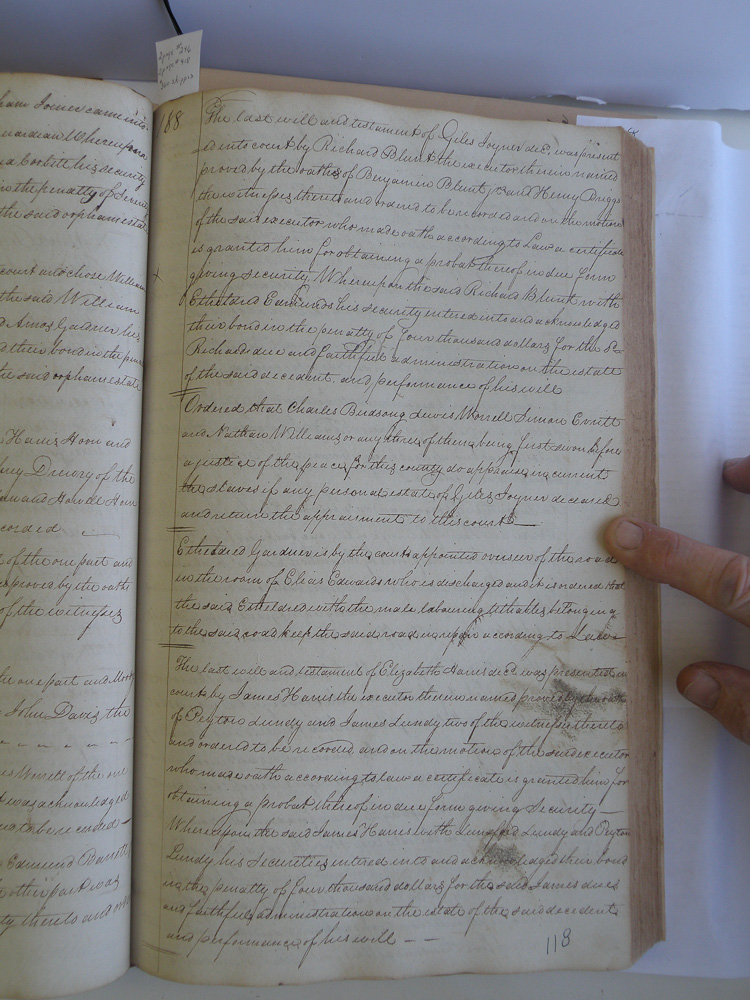 2 page #246
2 page # 418
skipped
ham Joiner came into
Guardian Whereupon
a Corbett his security
in the penalty of Seventy
the said orphans estate
court and chose William
the said William
d Amos Gardner his
d their bond in the
the said orphans estate
Harris Hoon and
Drewry of the
and Howell Horn
corded
t of the one part and
proved by the oaths
of the witnesses
he one part and
John Davis the
Worrell of the one
was acknowledged
to be recorded
Edmund Barrett
other part was
ty thereto and
188
The last will and testament of Giles Joyner decd. was present
ed into court by Richard Blunt the executor therein named
proved by the oaths of Benjamin Blunt and Henry Briggs
the witnesses thereto and ordered to be recorded and on the motion
of the said executor who made oath according to Law a certificate
is granted him for obtaining a probat thereof in due form
giving security. Whereupon the said Richard Blunt with
Etheldred Edmunds his security entered into and acknowledged
their bond in the penalty of four thousand dollars for the sd.
Richards due and faithful administration on the estate
of the said decedent and performance of his will
Ordered that Charles Birdsong Lewis Worrell Simon Everitt
and Nathan Williams or any three of them being first sworn before
a justice of the peace for this county do appraise in current
the slaves if any personal estate of Giles Joyner deceased
and return the appraisment to this court
Etheldred Gardner is by the court appointed overseer of the road
in the room of Elias Edwards who is discharged and it is ordered that
the said Etheldred with the male labouring tithables belonging
to the said road keep the said road in repair according to Law
The last will and testament of Elizabeth Harris decd. was presented in
court by James Harris the executor therein named proved by the oaths
of Peyton Lundy and James Lundy two of the witnesses thereto
and ordered to be recorded and on the motion of the said executor
who made oath according to law a certificate is granted him for
obtaining a probat thereof in due form giving Security
Whereupon the said James Harris with Lunsford Lundy and Peyton
Lundy his Securities entered into and acknowledged their bond
in the penalty of four thousand dollars for the said James dues
and faithful administration on the estate of the said decedent
and performance of his will
118